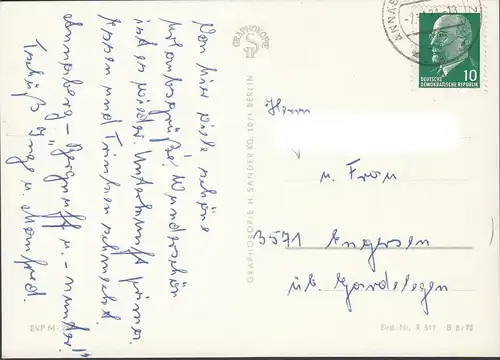 Von hier viele schöne
Urlaubsgrüße. Wunderschön
ist es wieder. Unterkunft prima.
Essen und Trinken schmeckt.
Annaberg-
Tschüß Inge u. Manfred.
GRAPHOKOPIE
GRAPHOKOPIE H. SANDER KG, 1071 BERLIN
EVP M
ANNAB
DEUTSCHE
DEMOKRATISCHE REPUBLIK
10
Herrn
u. Frau
3571 Engersen
üb. Gardelegen
Best.-Nr. R 511 B 8/72